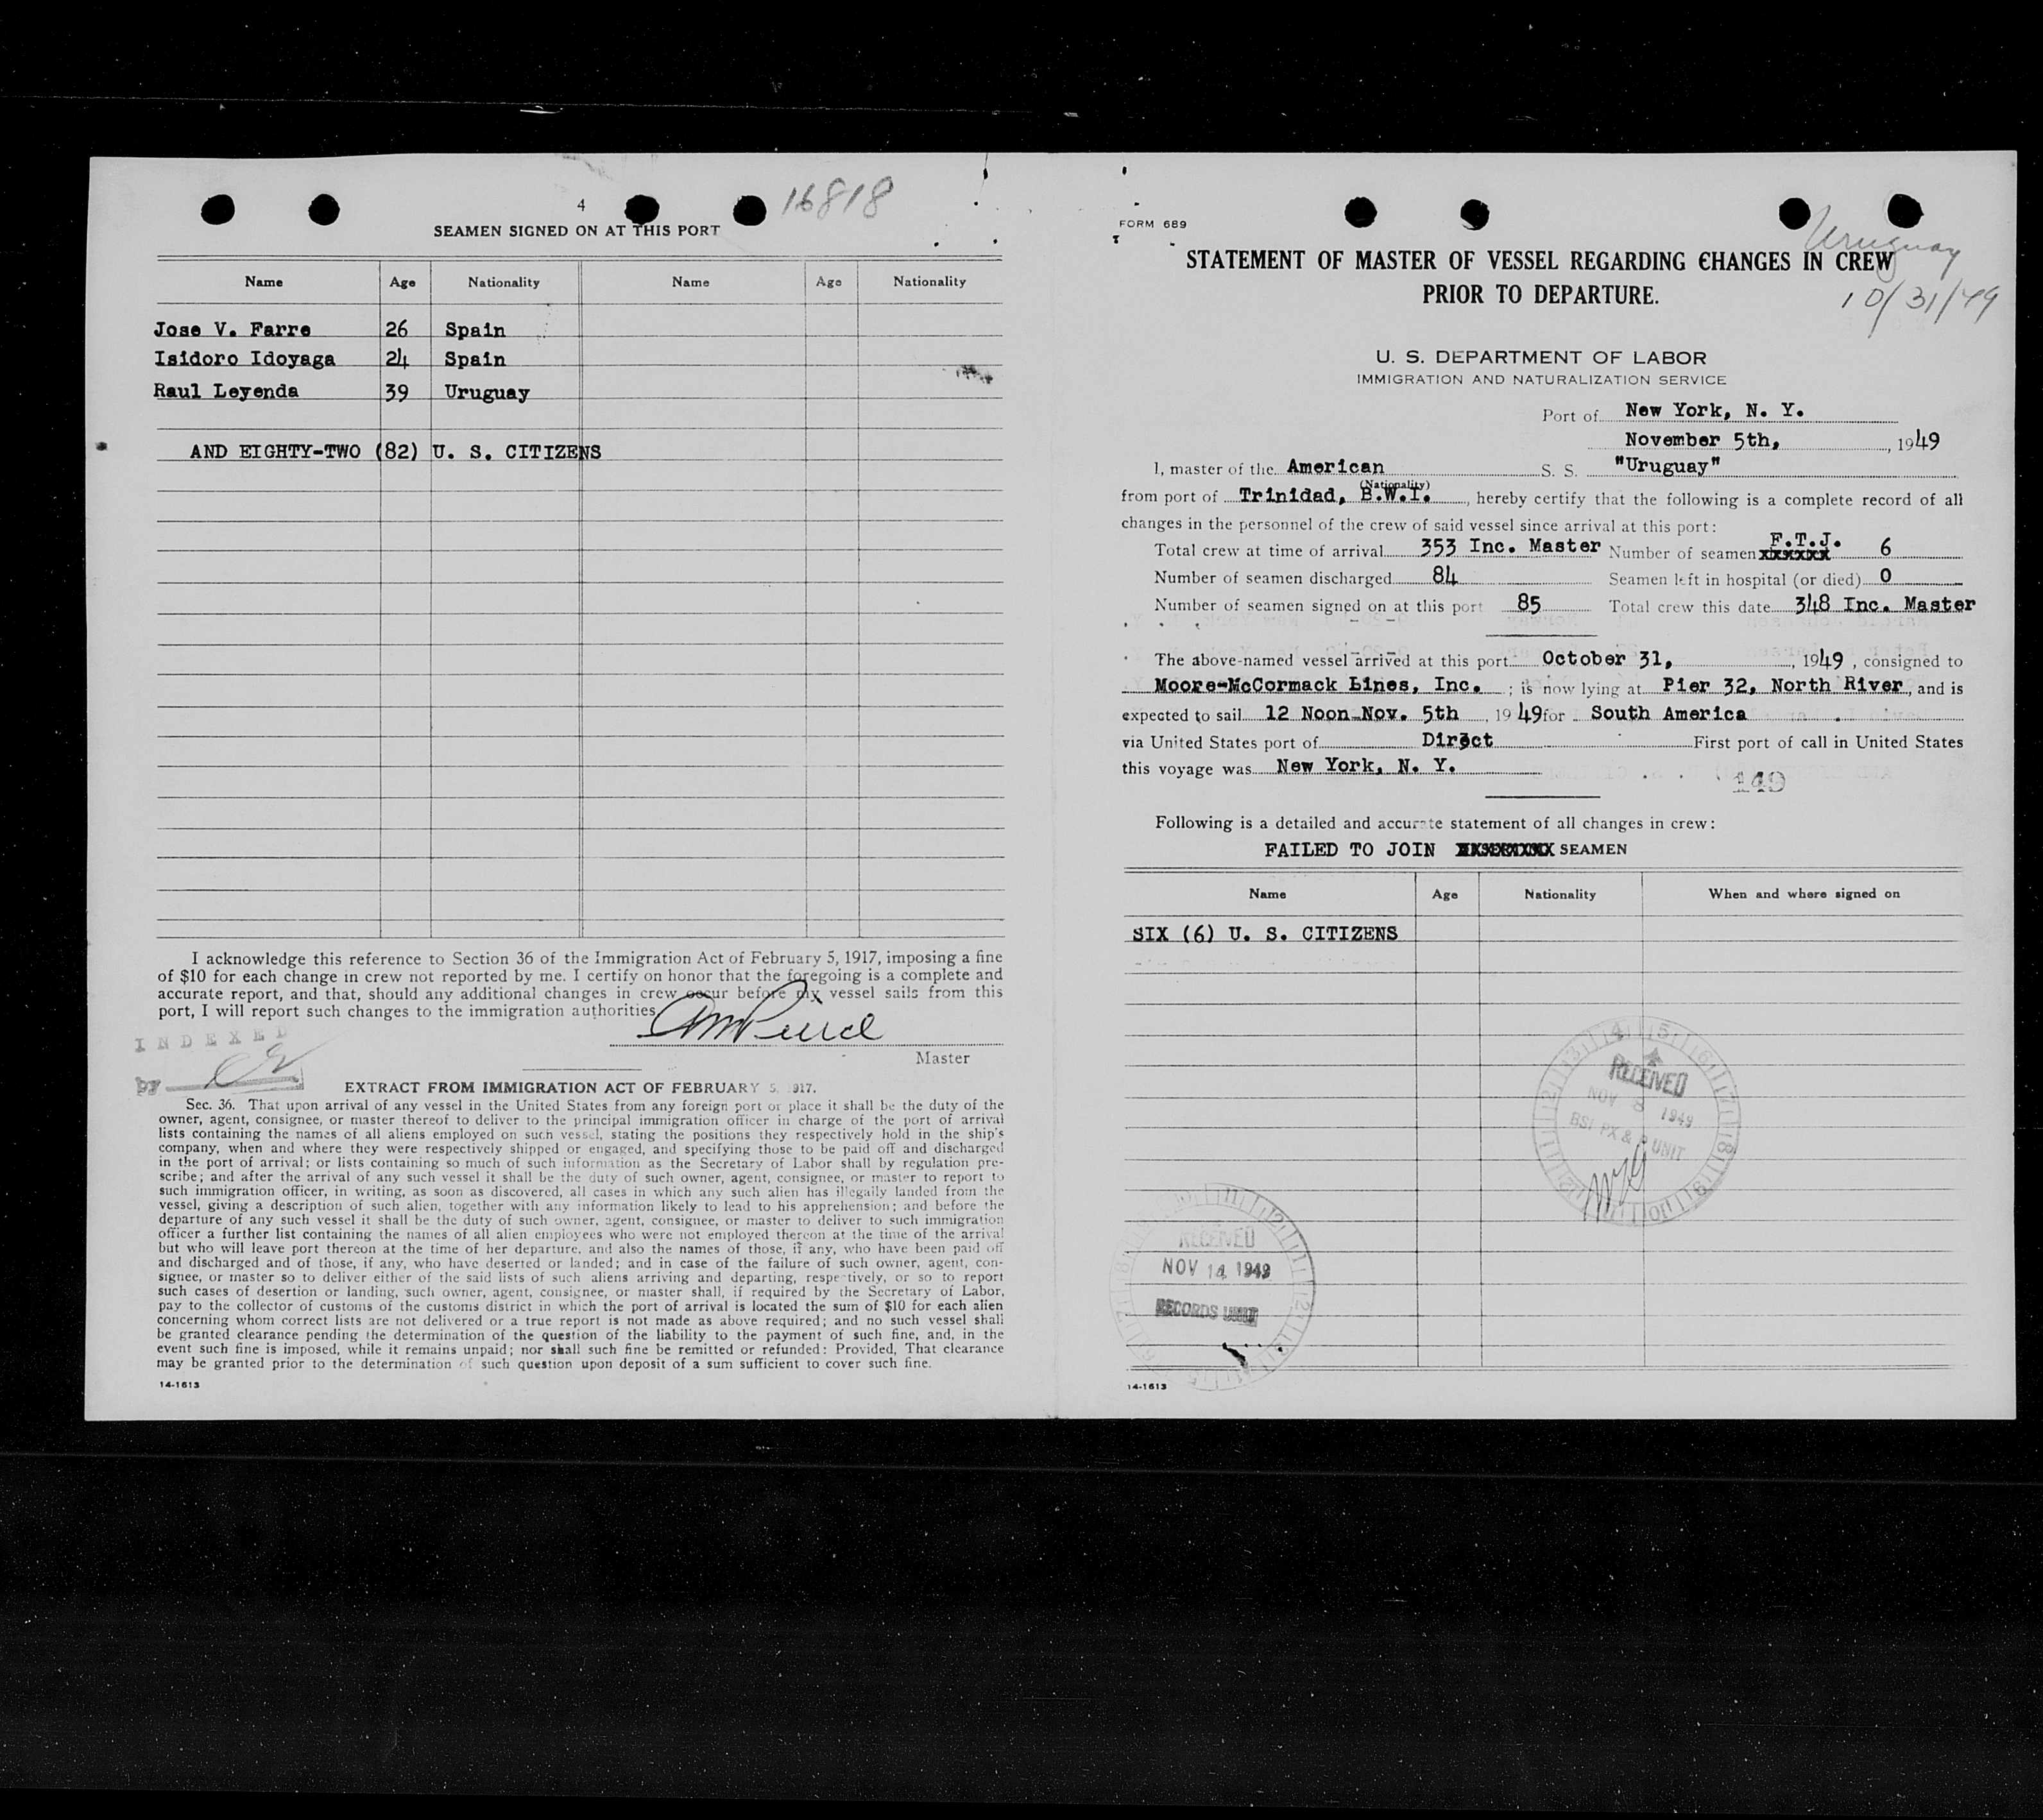 4
16818
SEAMEN SIGNED ON AT THIS PORT
Name Age Nationality Name Age Nationality
Jose V. Farre 26 Spain
Isidoro Idoyaga 24 Spain
Raul Leyenda 39 Uruguay
AND EIGHTY-TWO (82) U. S. CITIZENS
I acknowledge this reference to Section 36 of the Immigration Act of February 5, 1917, imposing a fine
of $10 for each change in crew not reported by me. I certify on honor that the foregoing is a complete and
accurate report, and that, should any additional changes in crew occur before my vessel sails from this
port, I will report such changes to the immigration authorities
Master
INDEXED
BY
EXTRACT FROM IMMIGRATION ACT OF FEBRUARY 5, 1917.
Sec. 36. That upon arrival of any vessel in the United States from any foreign port or place it shall be the duty of the
owner, agent, consignee, or master thereof to deliver to the principal immigration officer in charge of the port of arrival
lists containing the names of all aliens employed on such vessel, stating the positions they respectively hold in the ship's
company, when and where they were respectively shipped or engaged, and specifying those to be paid off and discharged
in the port of arrival; or lists containing so much of such information as the Secretary of Labor shall by regulation pre-
scribe; and after the arrival of any such vessel it shall be the duty of such owner, agent, consignee, or master to report to
such immigration officer, in writing, as soon as discovered, all cases in which any such alien has illegally landed from the
vessel, giving a description of such alien, together with any information likely to lead to his apprehension; and before the
departure of any such vessel it shall be the duty of such owner, agent, consignee, or master to deliver to such immigration
officer a further list containing the names of all alien employees who were not employed thereon at the time of the arrival
but who will leave port thereon at the time of her departure, and also the names of those, if any, who have been paid off
and discharged and of those, if any, who have deserted or landed; and in case of the failure of such owner, agent, con-
signee, or master so to deliver either of the said lists of such aliens arriving and departing, respectively, or so to report
such cases of desertion or landing, such owner, agent, consignee, or master shall, if required by the Secretary of Labor,
pay to the collector of customs of the customs district in which the port of arrival is located the sum of $10 for each alien
concerning whom correct lists are not delivered or a true report is not made as above required; and no such vessel shall
be granted clearance pending the determination of the question of the liability to the payment of such fine, and, in the
event such fine is imposed, while it remains unpaid; nor shall such fine be remitted or refunded: Provided, That clearance
may be granted prior to the determination of such question upon deposit of a sum sufficient to cover such fine.
14-1613
FORM 689
Uruguay
10/31/49
STATEMENT OF MASTER OF VESSEL REGARDING CHANGES IN CREW
PRIOR TO DEPARTURE.
U. S. DEPARTMENT OF LABOR
IMMIGRATION AND NATURALIZATION SERVICE
Port of New York, N. Y.
November 5th, , 1949
I, master of the American S. S. "Uruguay"
(Nationality)
from port of Trinidad, B.W.I. , hereby certify that the following is a complete record of all
changes in the personnel of the crew of said vessel since arrival at this port:
Total crew at time of arrival 353 Inc. Master Number of seamen F.T.J. 6
Number of seamen discharged 84 Seamen left in hospital (or died) 0
Number of seamen signed on at this port 85 Total crew this date 348 Inc. Master
The above-named vessel arrived at this port October 31, , 1949 , consigned to
Moore-McCormack Lines, Inc. ; is now lying at Pier 32, North River , and is
expected to sail 12 Noon-Nov. 5th , 1949 for South America
via United States port of Direct First port of call in United States
this voyage was New York, N. Y.
149
Following is a detailed and accurate statement of all changes in crew:
FAILED TO JOIN SEAMEN
Name Age Nationality When and where signed on
SIX (6) U. S. CITIZENS
RECEIVED
NOV 8 1949
BSI PX & P UNIT
RECEIVED
NOV 14 1949
RECORDS UNIT
14-1613